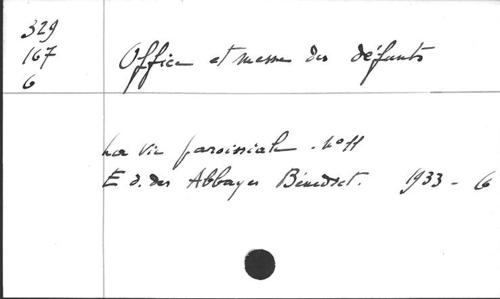 329
167
6
Office et messe des défunts
La vie paroissiale. N° 11
Ed. des Abbayes Bénédict. 1933 - 6